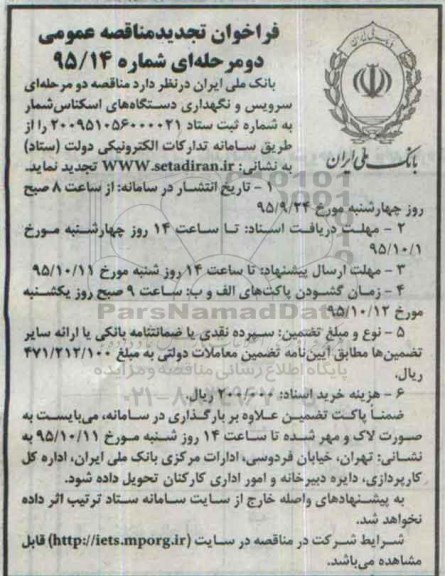 فراخوان تجدیدمناقصه عمومی
دومرحله‌ای شماره ۹۵/۱۴
بانک ملی ایران
بانک ملی ایران درنظر دارد مناقصه دو مرحله‌ای
سرویس و نگهداری دستگاه‌های اسکناس‌شمار
به شماره ثبت ستاد ۲۰۰۹۵۱۰۵۶۰۰۰۰۲۱ را از
طریق سامانه تدارکات الکترونیکی دولت (ستاد)
به نشانی: WWW.setadiran.ir تجدید نماید.
۱ - تاریخ انتشار در سامانه: از ساعت ۸ صبح
روز چهارشنبه مورخ ۹۵/۹/۲۴
۲ - مهلت دریافت اسناد: تا ساعت ۱۴ روز چهارشنبه مورخ
۹۵/۱۰/۱
۳ - مهلت ارسال پیشنهاد: تا ساعت ۱۴ روز شنبه مورخ ۹۵/۱۰/۱۱
۴ - زمان گشودن پاکت‌های الف و ب: ساعت ۹ صبح روز یکشنبه
مورخ ۹۵/۱۰/۱۲
ParsNamadData
۵ - نوع و مبلغ تضمین: سپرده نقدی یا ضمانتنامه بانکی یا ارائه سایر
تضمین‌ها مطابق آیین‌نامه تضمین معاملات دولتی به مبلغ ۴۷۱/۲۱۲/۱۰۰
ریال.
پایگاه اطلاع رسانی مناقصه و مزایده
۶ - هزینه خرید اسناد: ۲۰۰/۰۰۰ ریال.
ضمناً پاکت تضمین علاوه بر بارگذاری در سامانه، می‌بایست به
صورت لاک و مهر شده تا ساعت ۱۴ روز شنبه مورخ ۹۵/۱۰/۱۱ به
نشانی: تهران، خیابان فردوسی، ادارات مرکزی بانک ملی ایران، اداره کل
کارپردازی، دایره دبیرخانه و امور اداری کارکنان تحویل داده شود.
به پیشنهادهای واصله خارج از سایت سامانه ستاد ترتیب اثر داده
نخواهد شد.
شرایط شرکت در مناقصه در سایت (http://iets.mporg.ir) قابل
مشاهده می‌باشد.